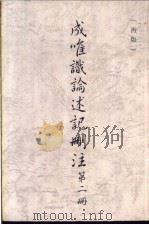 （再版）
成唯識論述記刪注第二冊